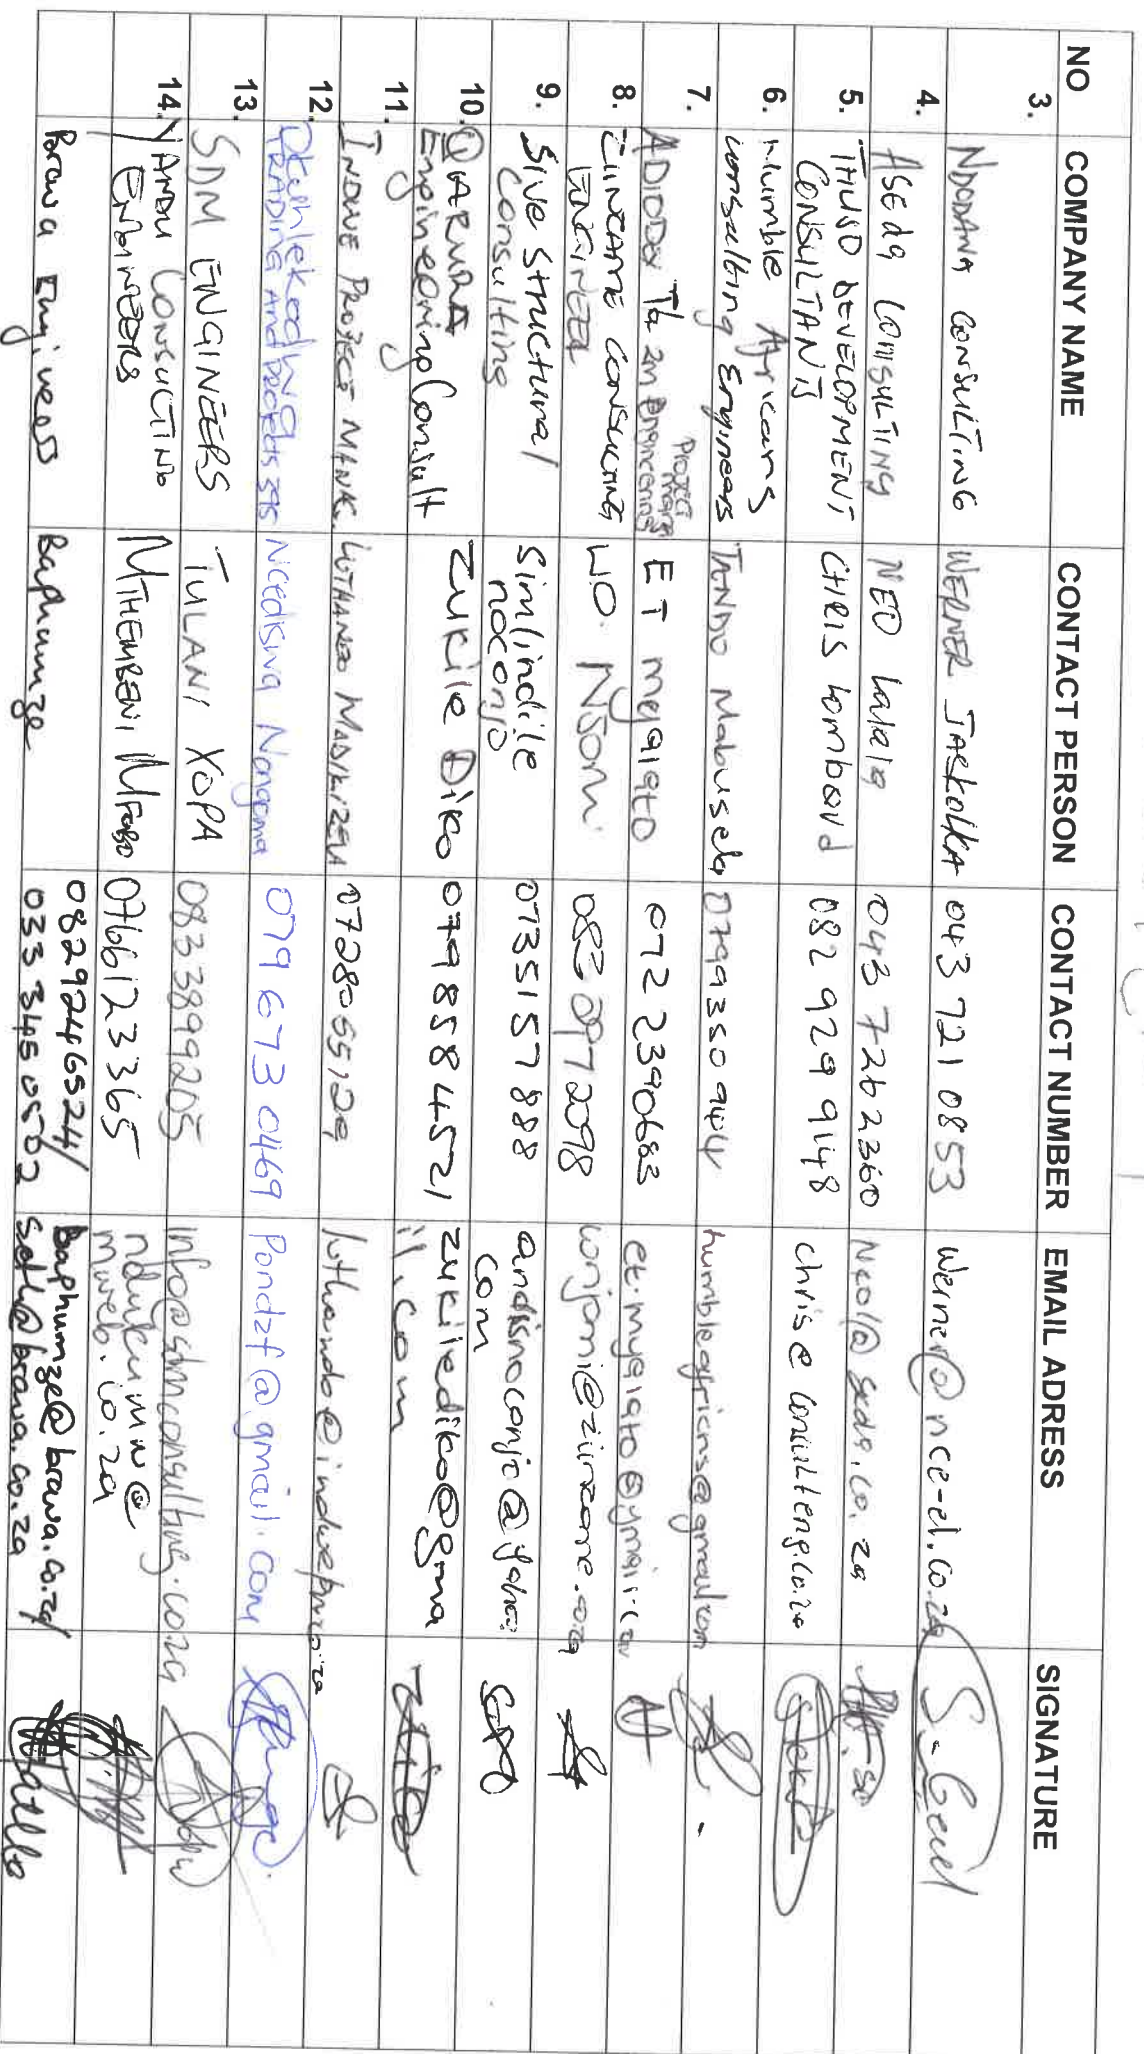 NO COMPANY NAME CONTACT PERSON CONTACT NUMBER EMAIL ADRESS SIGNATURE
3.
NDODANA CONSULTING WERNER JAEKOLKA 043 721 0853 Werner@nce-el.co.za
4.
Aseda Consulting NEO Lalala 043 726 2360
5.
THUSO DEVELOPMENT CONSULTANTS CHRIS Lombard 082 929 9148 chris@consulteng.co.za
6.
Humble Africans
consulting Engineers TANDO Mabusela 0799350944
7.
ADIODEX T/a 2m Engineering Project ET mgqiqto 072 2390683
8.
ZIINZAME CONSULTING
ENGINEER W.O. Njomi 083 097 2098
9.
Sive Structural
Consulting Simlindile
noconjo 0735157888 andisnoconjo@yahoo.
com
10.
QARMRA
Engineering Consult ZUKILE DIKO 0798588452 zukilediko@gma
il.com
11.
INDWE PROJECT MANG. LUTHANDO MADIKIZELA 0728055129
12.
TRADING AND PROJECTS 395 Ncediswa Nongoma 079 673 0469 Pondzf@gmail.com
13.
SDM ENGINEERS TULANI XOPA 0833899205 info@sdmconsulting.co.za
14.
YANDU CONSULTING
ENGINEERS MTHEMBENI MFOBO 0766123365 ndukumn@
mweb.co.za
Brawa Engineers Baphumze 0829246524/
033 345 0502 Baphumze@brawa.co.za/
seth@brawa.co.za